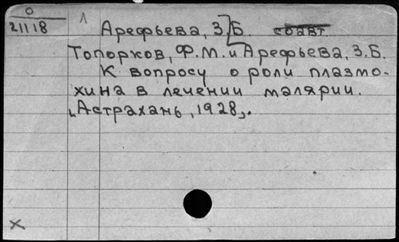 0
21118
1
Арефьева, З.Б. соавт.
Топорков, Ф.М. и Арефьева, З.Б.
К вопросу о роли плазмо-
хина в лечении малярии.
[Астрахань, 1928].
X